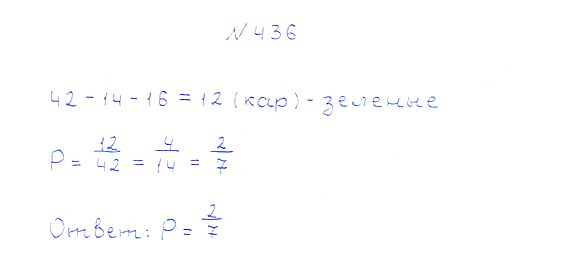 N 436
42 - 14 - 16 = 12 (кар) - зеленые
P = 12/42 = 4/14 = 2/7
Ответ: P = 2/7